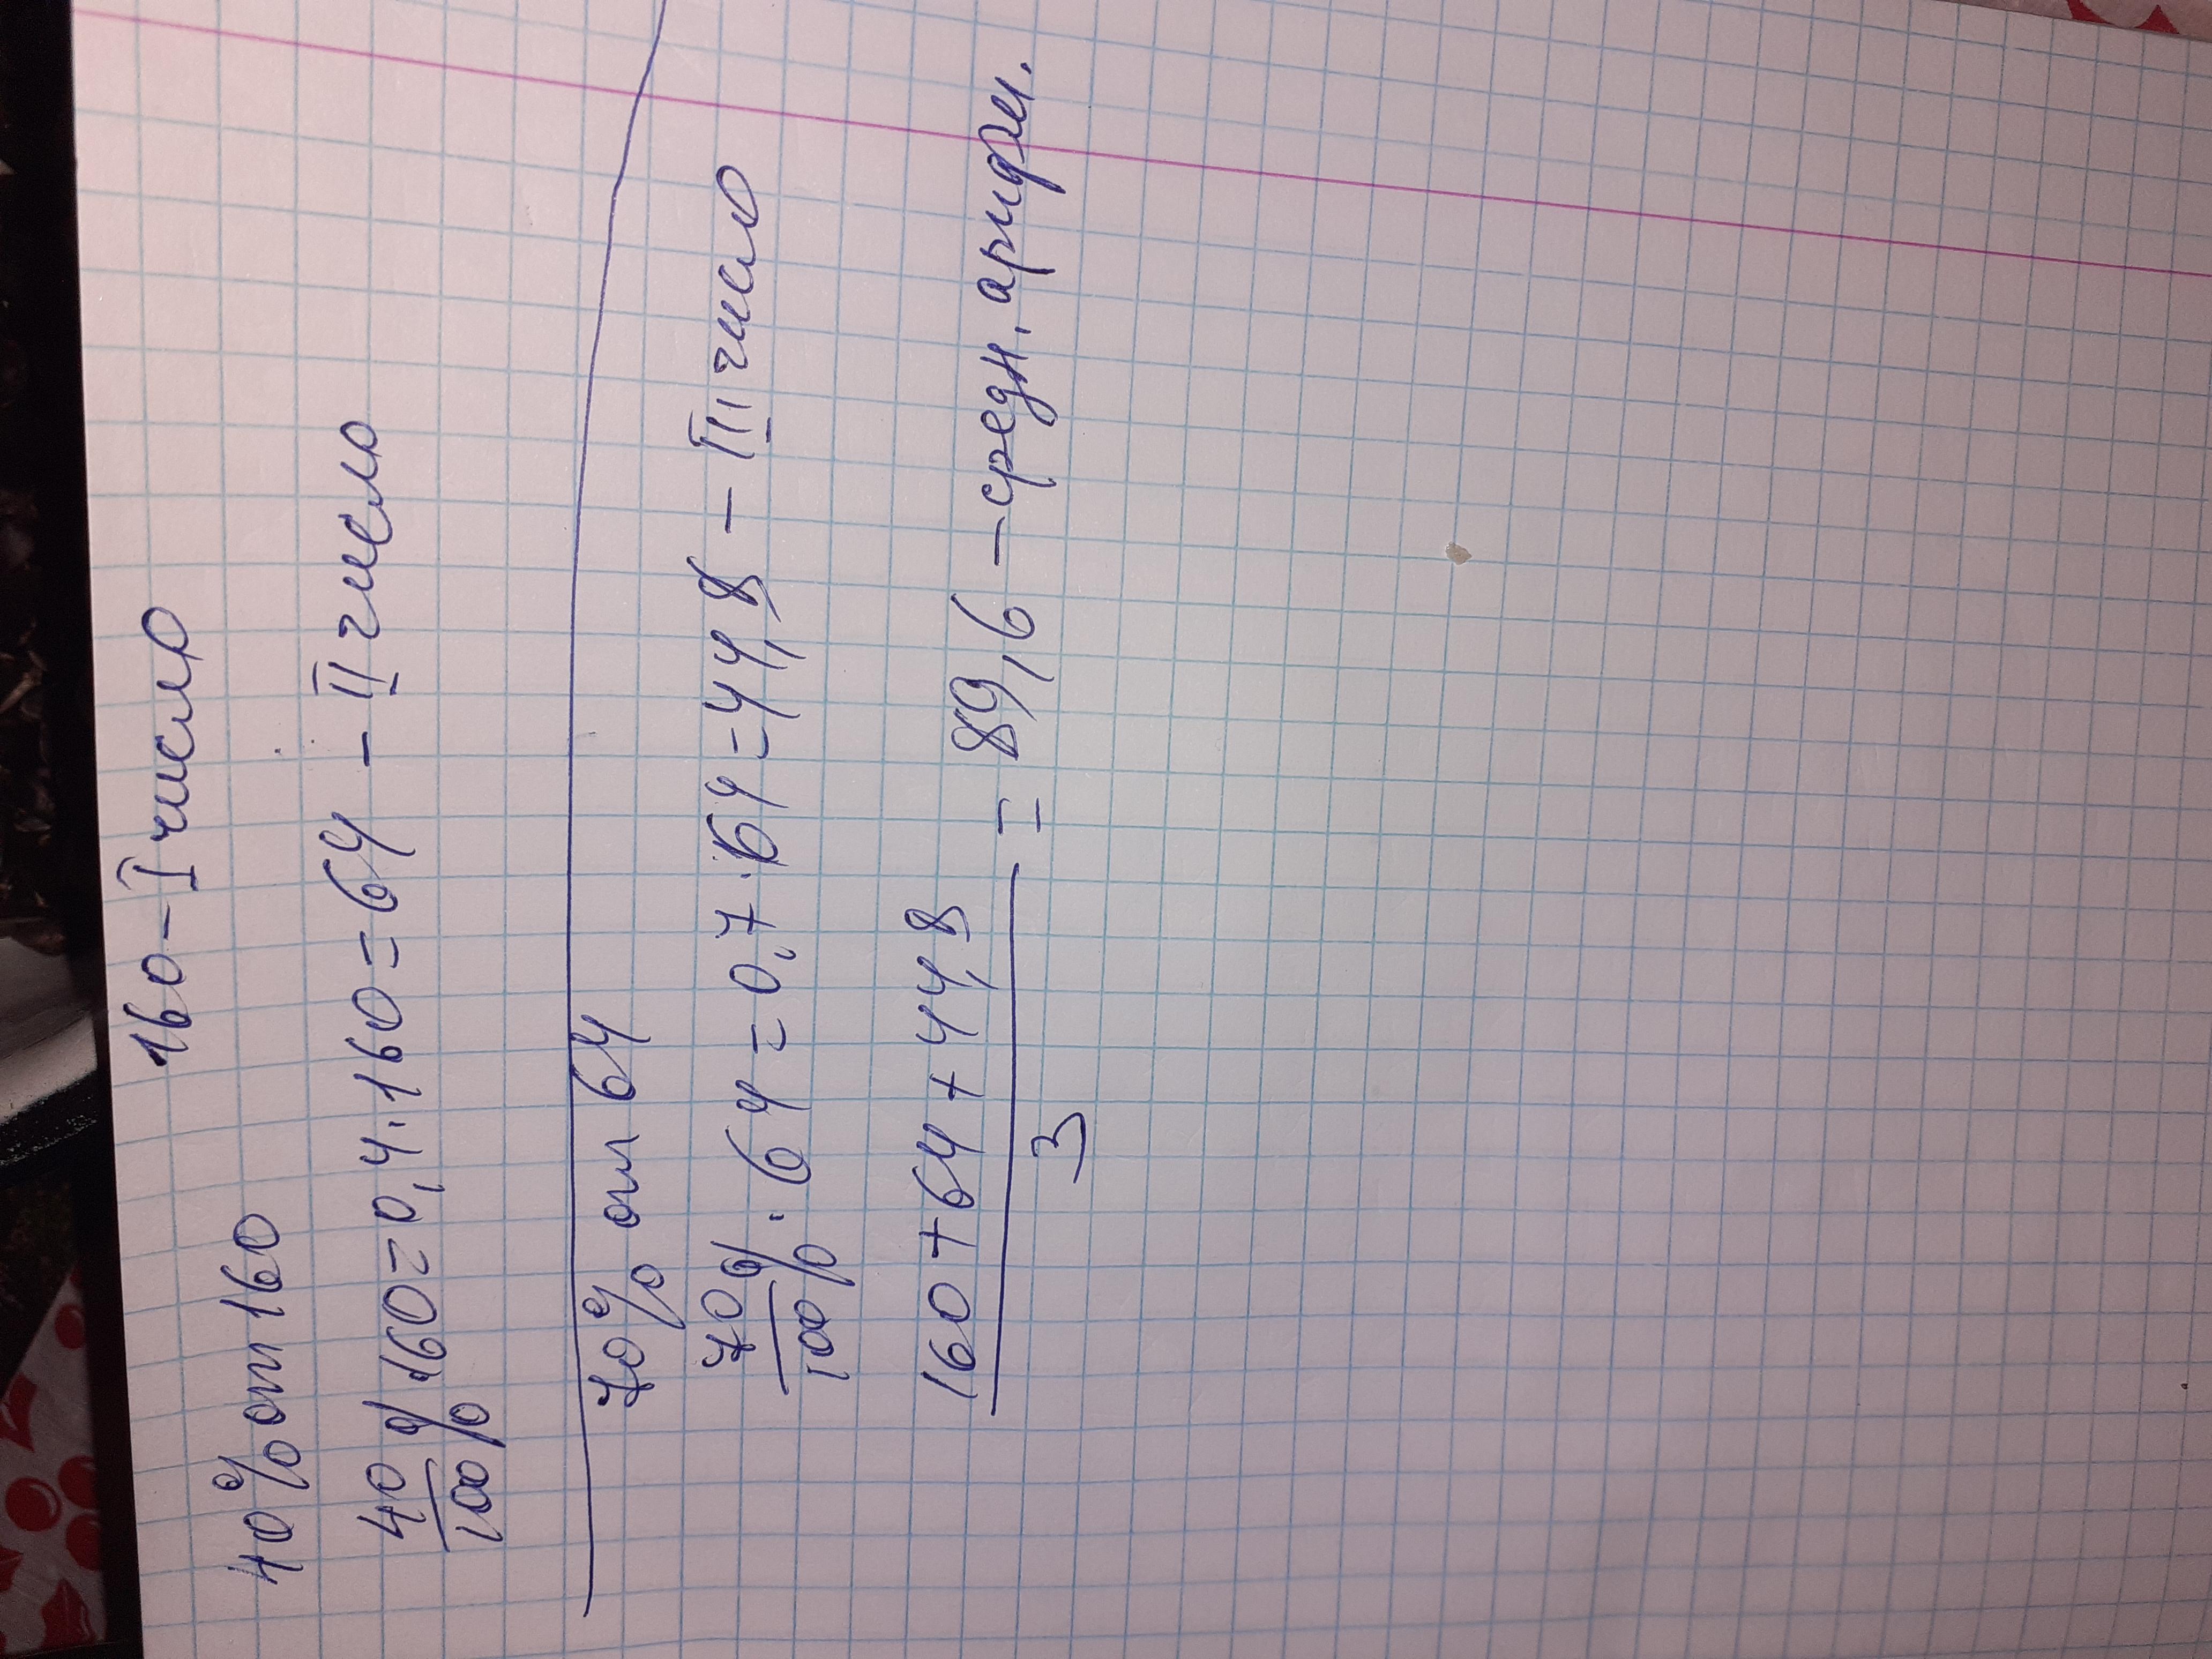 160 - I число
40% от 160
40%/100% · 160 = 0,4 · 160 = 64 - II число
70% от 64
70%/100% · 64 = 0,7 · 64 = 44,8 - III число
160 + 64 + 44,8
3
= 89,6 - средн. арифм.